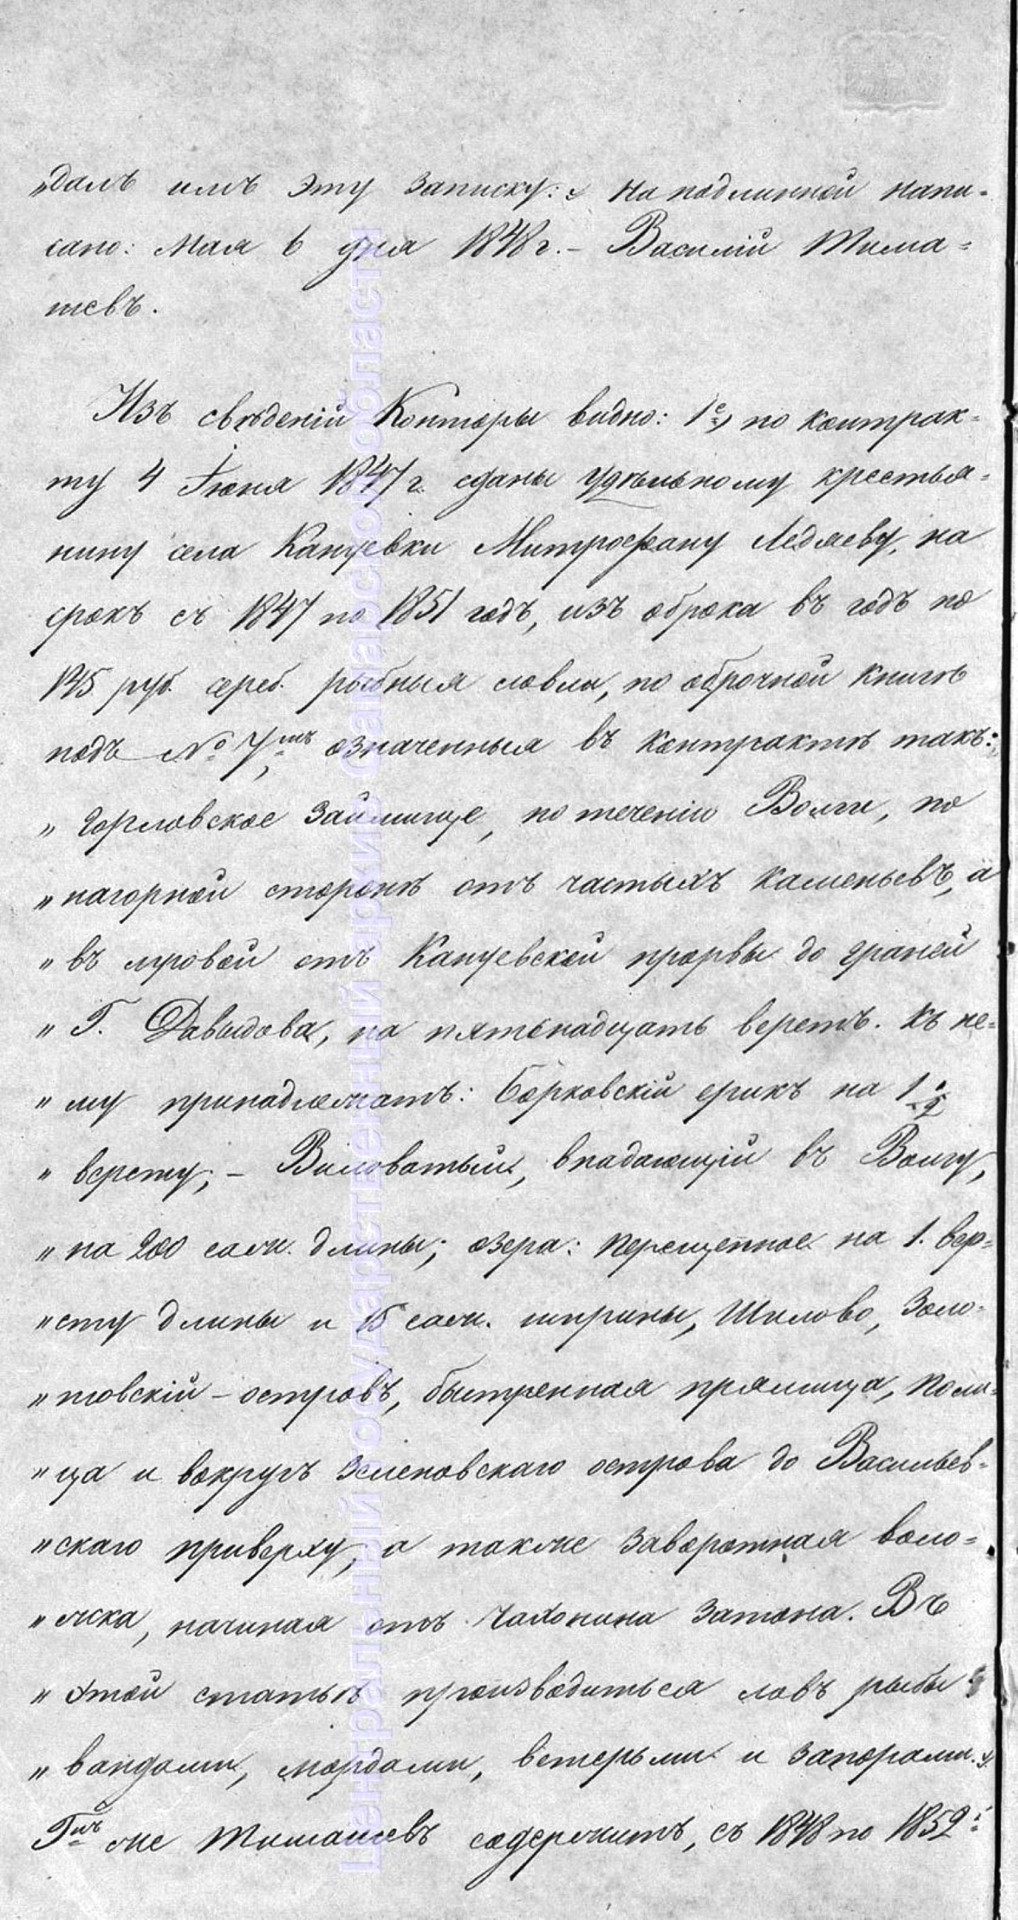 „далъ имъ эту записку: “ На подлинной напи-
сано: Мая 6 дня 1848 г. – Василій Тима-
шевъ.
Изъ свѣдѣній Конторы видно: 1е, по контрак-
ту 4 Іюня 1847 г. сданы удѣльному крестья-
нину села Кануевки Митрофану Ледяеву, на
срокъ съ 1847 по 1851 годъ, изъ оброка въ годъ по
145 руб. сереб. рыбныя ловли, по оброчной книгѣ
подъ № 7мъ, означенныя въ контрактѣ такъ:
„ Горловское займище, по теченію Волги, по
„ нагорной сторонѣ отъ частыхъ каменьевъ, а
„ въ луговой отъ Кануевской прорвы до граней
„ Г. Давыдова, на пятьнадцать верстъ. Къ не-
„ му принадлежатъ: Борковскій ерикъ на 1/2
„ версту; – Виловатый, впадающій въ Волгу,
„ на 200 саж. длины; озера: Перещепное на 1. вер-
„ сту длины и 15 саж. ширины, Шилово, Золо-
„ товскій – островъ, быстренная прямица, поли-
„ ца и вокругъ Зеленовскаго острова до Васильев-
„ скаго приверху, а также заворотная воло-
„ жска, начиная отъ Чахонина затона. Въ
„ этой статьѣ производиться ловъ рыбы
„ вандами, мордами, ветерьми и запорами. “
Гнъ же Тимашевъ содержитъ, съ 1848 по 1852й
Центральный государственный архив Самарской области